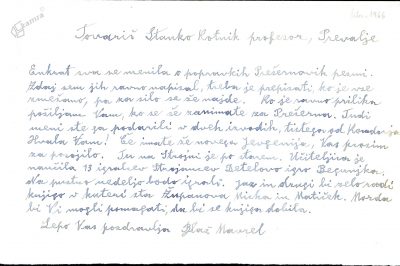 Tovariš Stanko Kotnik profesor, Prevalje
Enkrat sva se menila o popravkih Prešernovih pesmi.
Zdaj sem jih ravno napisal, treba je prepisati, ko je vse
zmešano, pa za silo se že najde. Ko je ravno prilika
pošiljam Vam, ko se že zanimate za Prešerna. Tudi
meni ste ga podarili v dveh izvodih, tistega od
Hvala Vam! Če imate še novega Jevgenija, Vas prosim
za posojilo. Tu na Strojni je po starem. Učiteljica je
naučila 13 igralcev Strojancev Detelovo igro Begunjka.
Na pustno nedeljo bodo igrali. Jaz in drugi bi zelo radi
knjigo v kateri sta Županova Micka in Matiček. Morda
bi Vi mogli pomagati, da bi se knjiga dobila.
Lepo Vas pozdravlja Blaž Mavrel